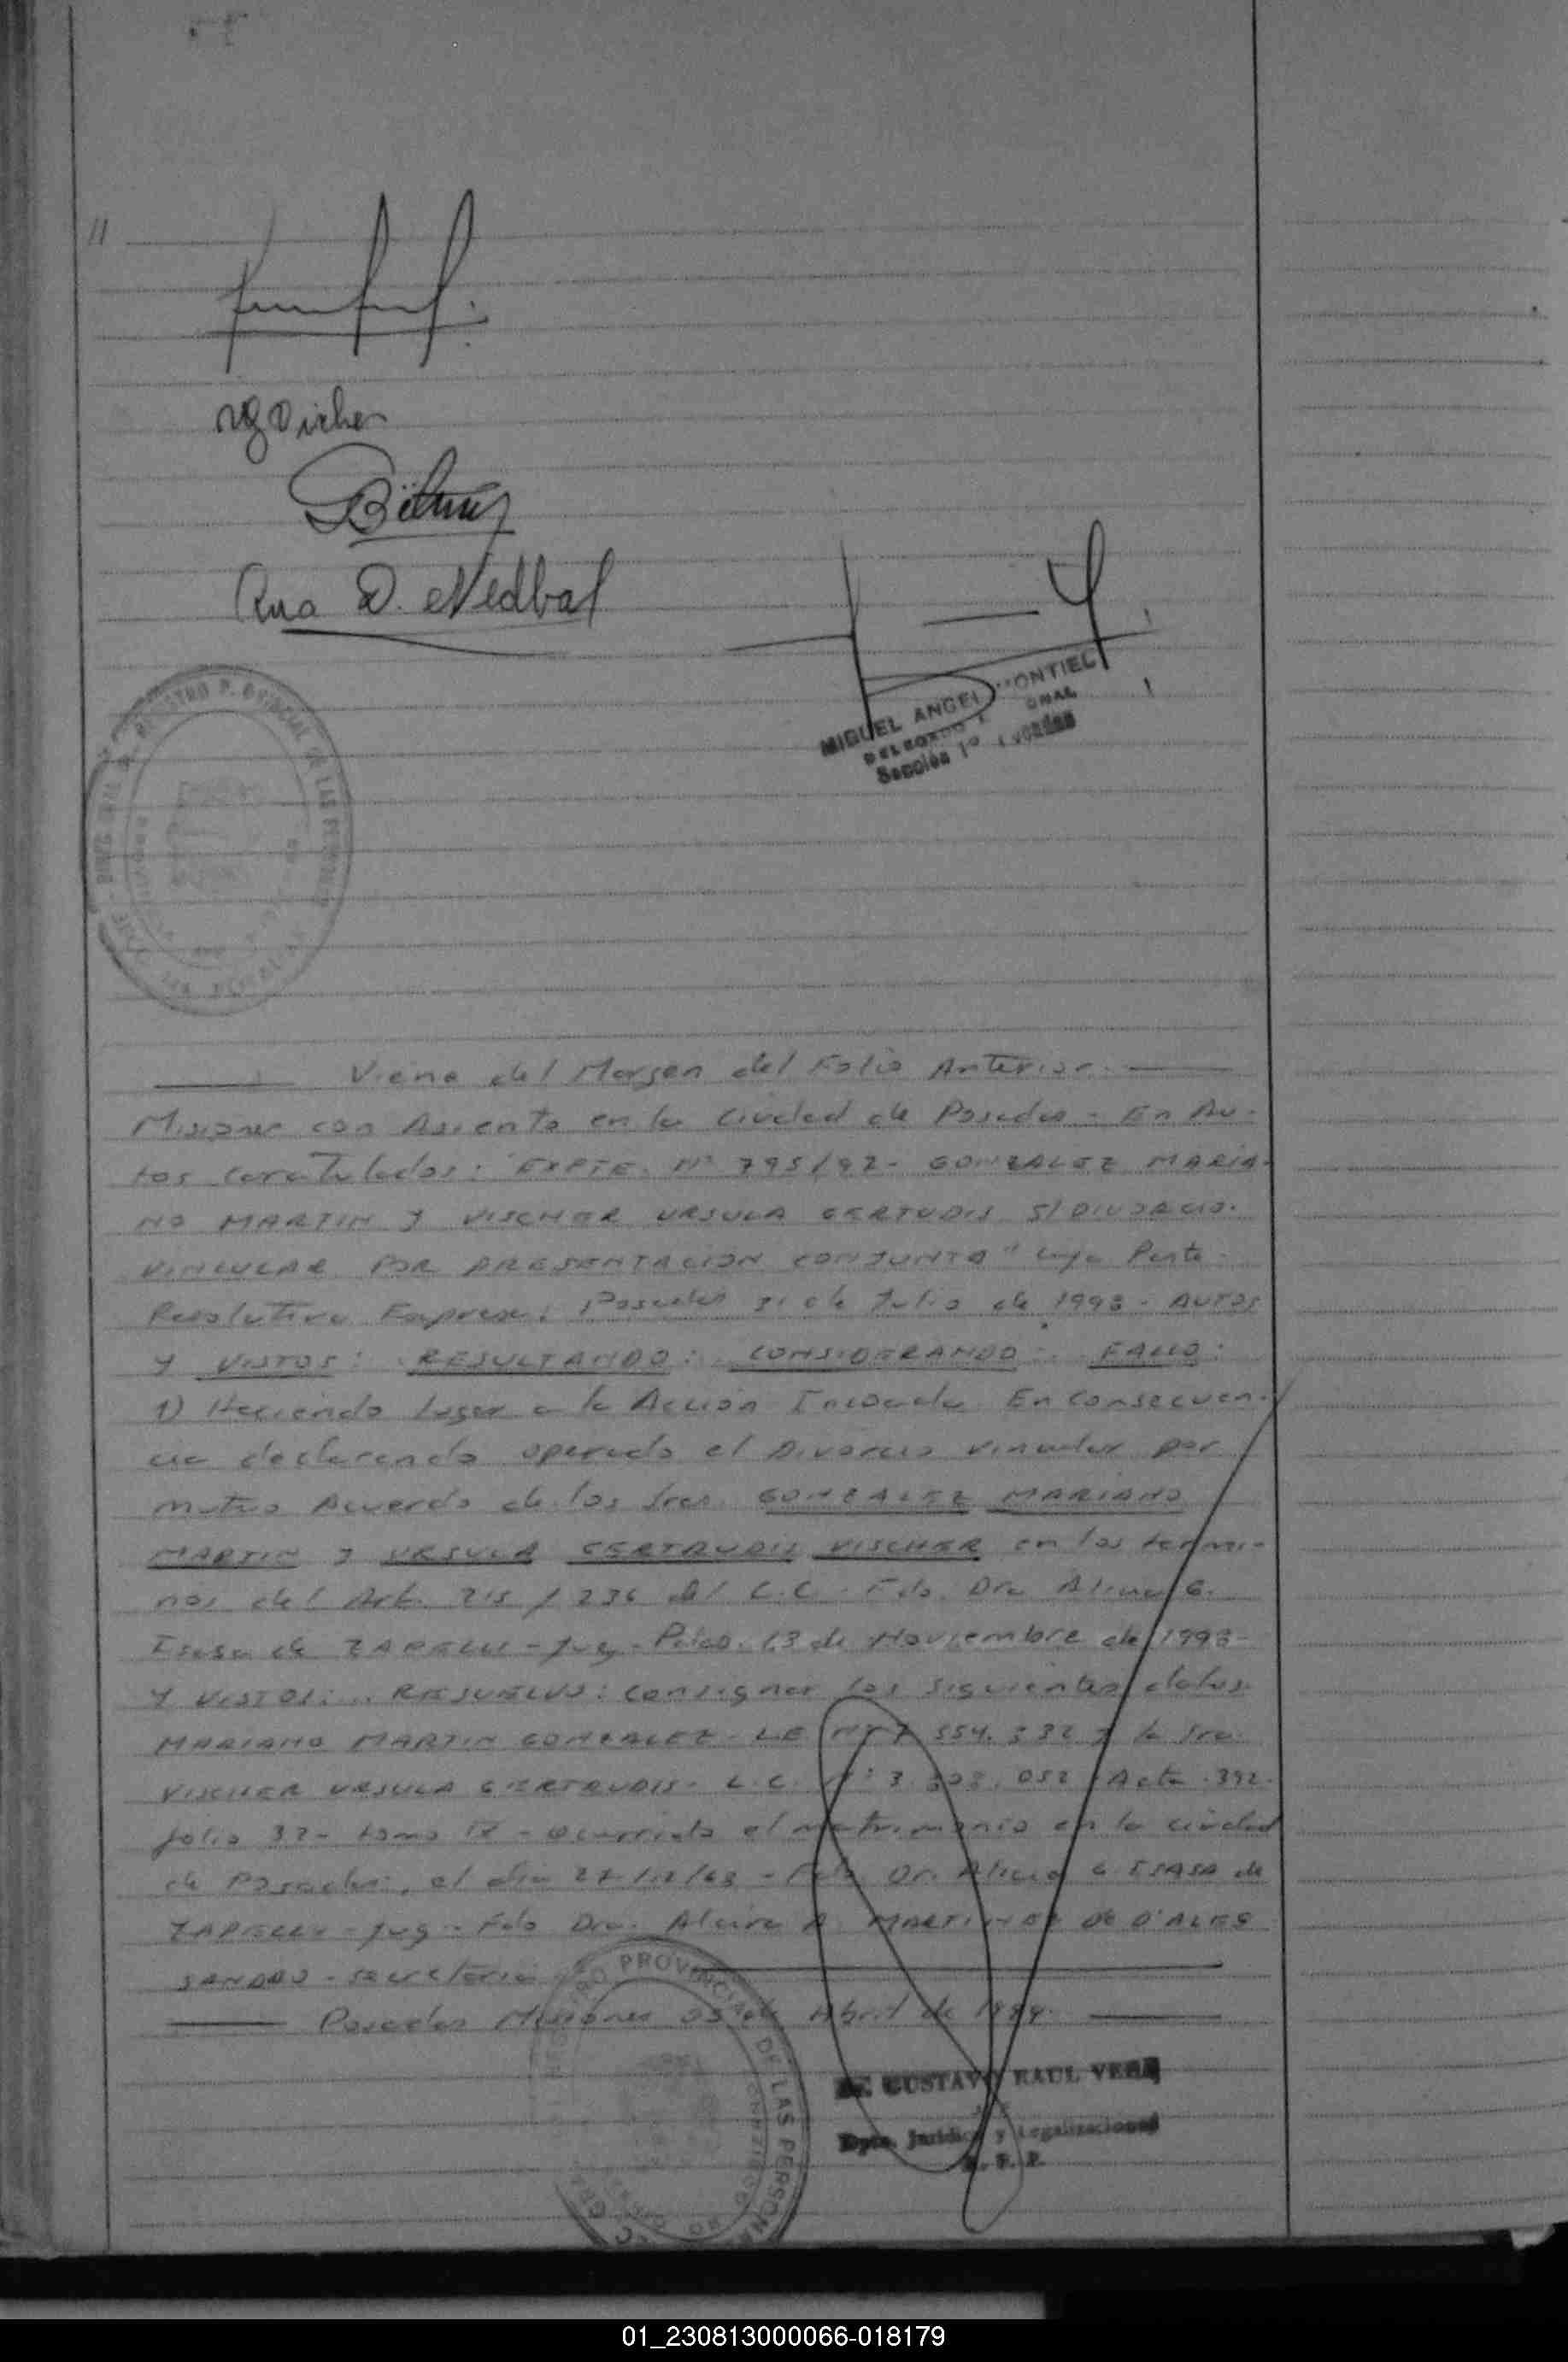 11
Ana D. Nedbal
MIGUEL ANGEL MONTIEL
Sección 1º
REGISTRO PROVINCIAL DE LAS PERSONAS
Viene del Margen del Folio Anterior.
Misiones con Asiento en la Ciudad de Posadas - En Au-
tos Caratulados: "EXPTE. Nº 795/92- GONZALEZ MARIA-
NO MARTIN Y VISCHER URSULA GERTUDIS S/DIVORCIO.
VINCULAR POR PRESENTACION CONJUNTA" cuya Parte
Resolutiva Expresa: Posadas 31 de Julio de 1993 - AUTOS
Y VISTOS: RESULTANDO: CONSIDERANDO: FALLO:
1) Haciendo lugar a la Acción Incoada. En consecuen-
cia declarando operado el Divorcio Vincular por
mutuo Acuerdo de los Sres. GONZALEZ MARIANO
MARTIN y URSULA GERTRUDIS VISCHER en los termi-
nos del Art. 215 / 236 del C.C. Fdo. Dra G.
Isasa de ZAPELLI - Juez - Pdas. 13 de Noviembre de 1993-
Y VISTOS: RESUELVO: Consignar los siguientes datos
MARIANO MARTIN GONZALEZ - LE Nº 7 554.332 y la Sra.
VISCHER URSULA GERTRUDIS - L.C. Nº 3. 052 Acta 392.
folio 32- tomo IV - Ocurrido el matrimonio en la ciudad
de Posadas, el dia 27/12/63 - Fdo Dr. Alicia G ISASA de
ZAPELLI - Juez - Fdo Dra. Alcira A. MARTINEZ de D'ALES
SANDRO - Secretaria
Posadas Misiones 05 de Abril de 1994.
REGISTRO PROVINCIAL DE LAS PERSONAS
GUSTAVO RAUL VERA
Dpto. Jurídico y Legalizaciones
R. P. P.
01_230813000066-018179